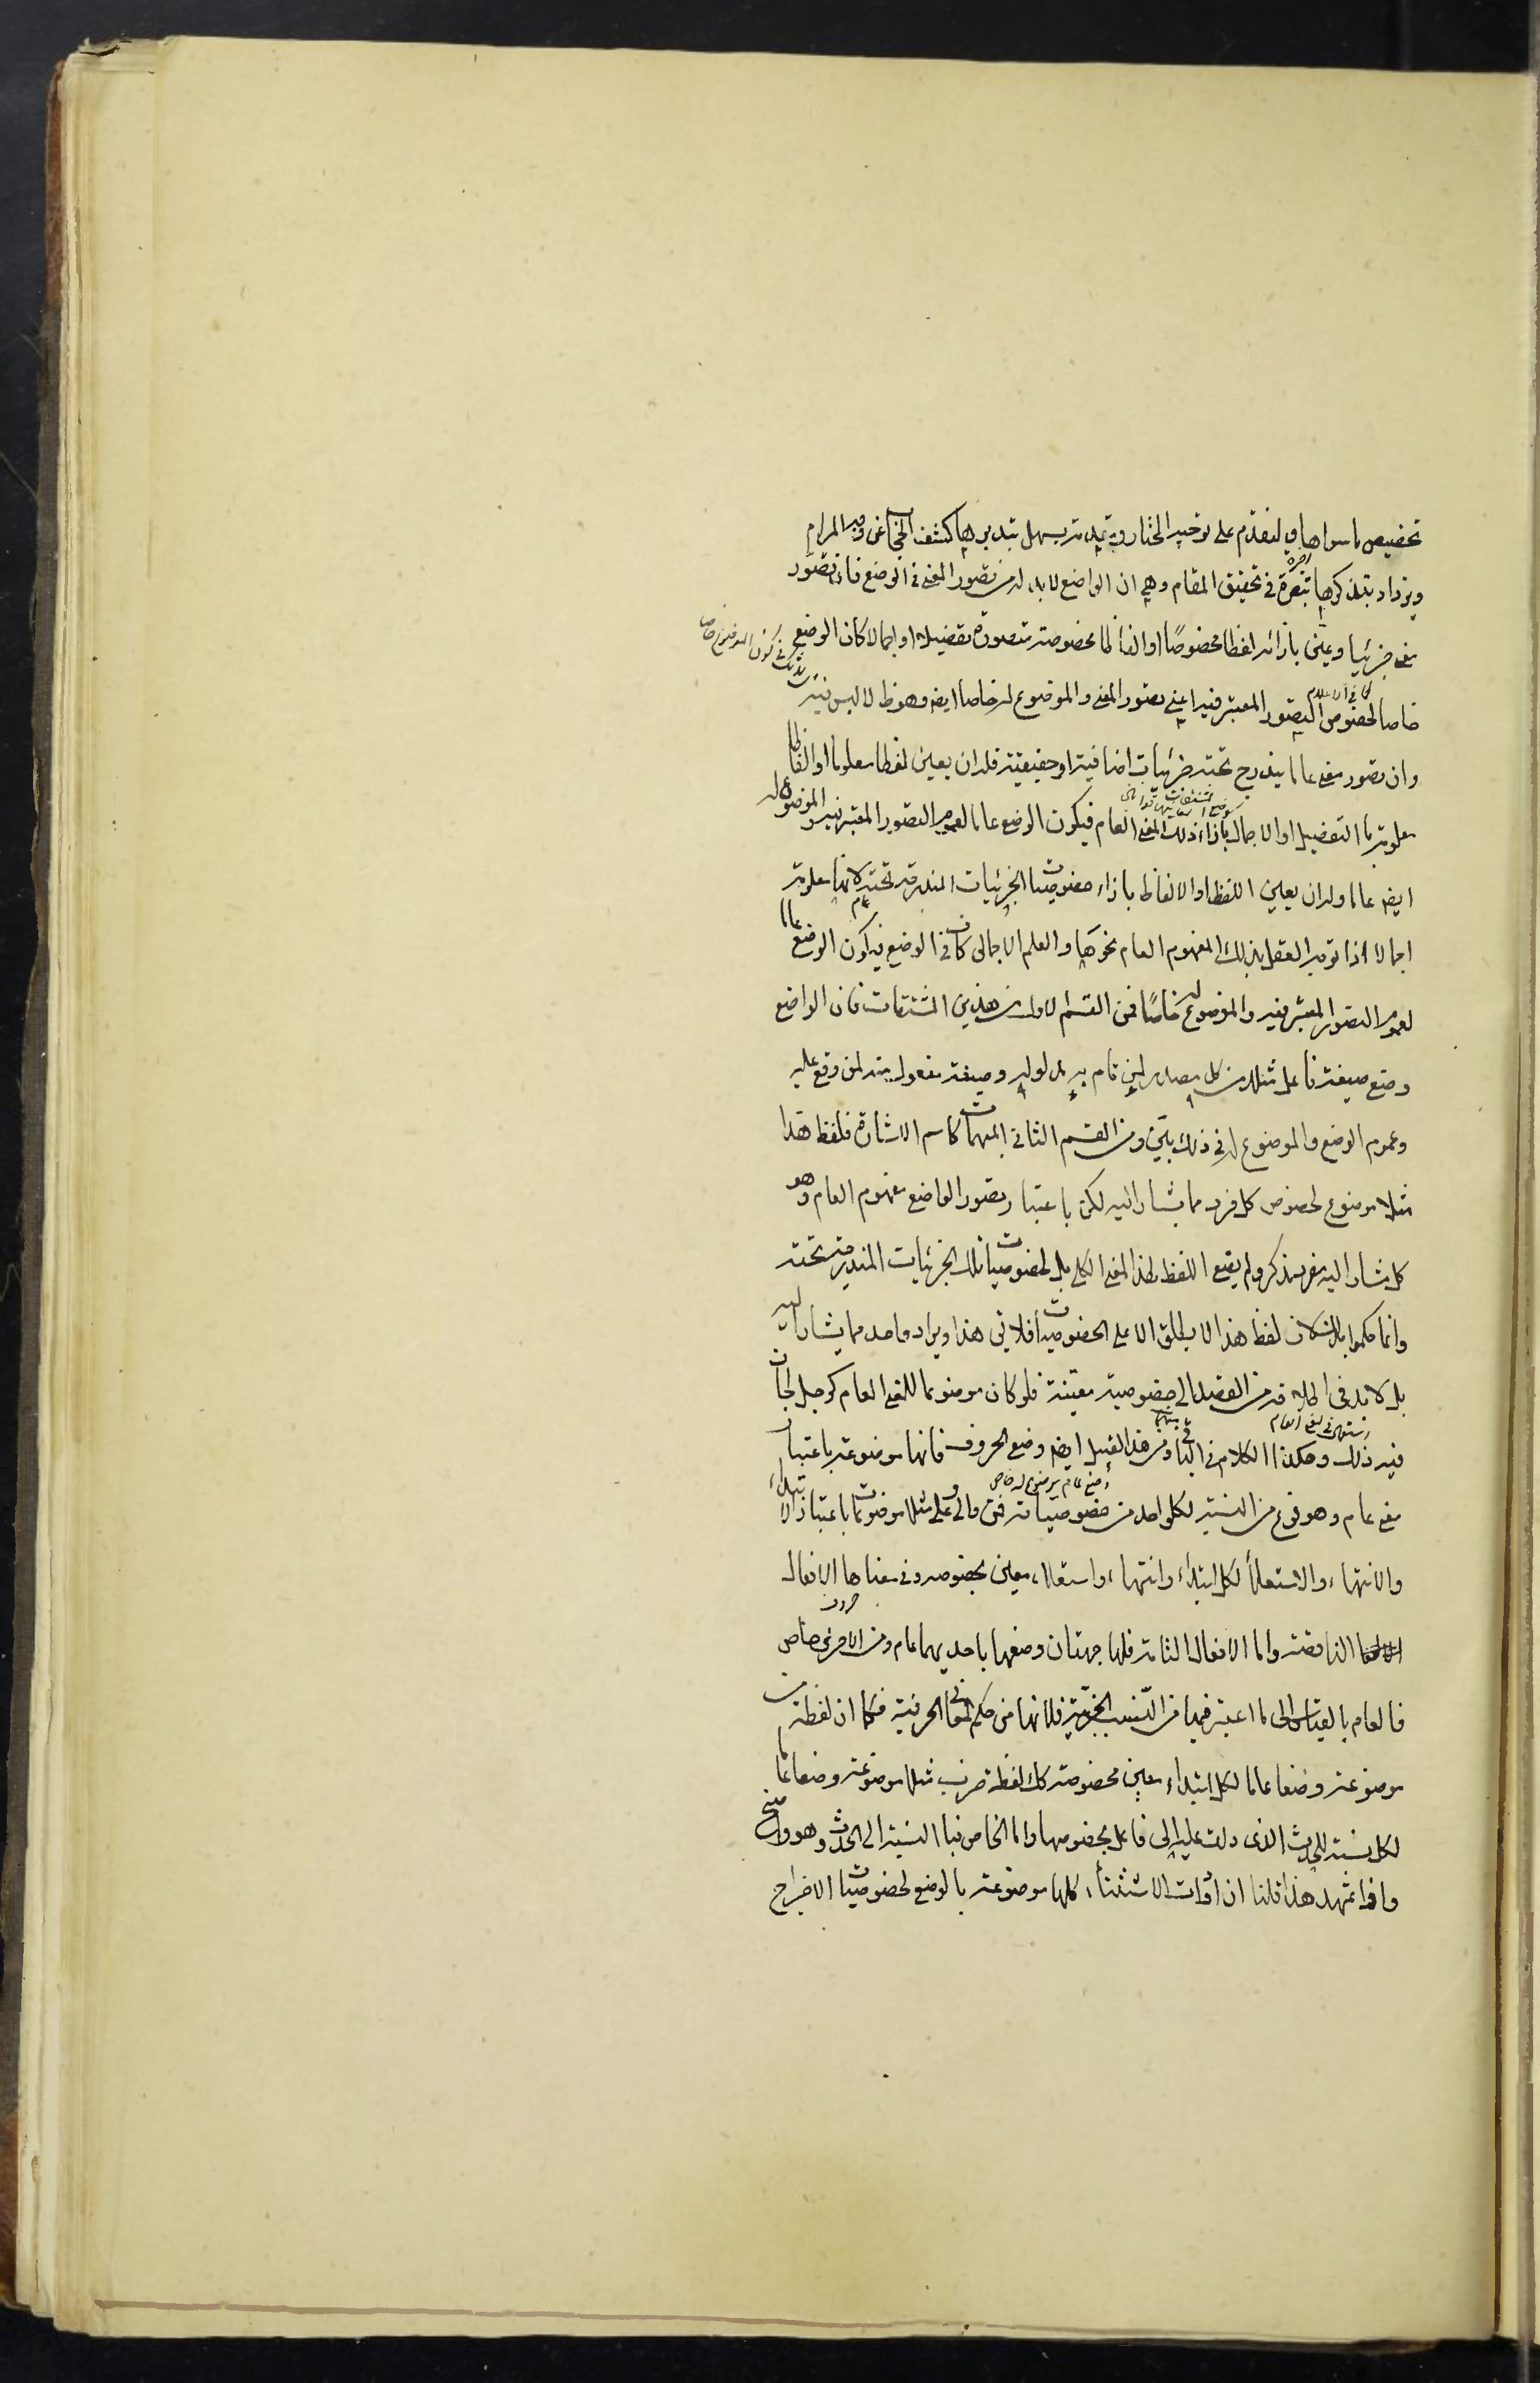 تخصيص ما سواها ولنقدم على توجيه المختار وبه مقدمة يسهل بتدبرها كشف الحجاب عن وجه المرام
ويزداد بتذكرها تبصرة في تحقيق المقام وهي ان الواضع لا بد له من تصور المعنى في الوضع فان تصور
معنى جزئيا وعين بازائه لفظا مخصوصًا او الفاظا مخصوصة متصورة تفصيلا او اجمالا كان الوضع
خاصا لخصوص التصور المعتبر فيه اعني تصور المعنى والموضوع له خاصا ايضا وهو ظ لا لبس فيه
كما في الاعلام
وان تصور معنى عاما يندرج تحته جزئيات اضافية او حقيقية فله ان يعين لفظا معلوما او الفاظا
معلومة بالتفصيل او الاجمال بازاء ذلك المعنى العام فيكون الوضع عاما لعموم التصور المعتبر فيه والموضوع له
ايضا عاما وله ان يعين اللفظ او الالفاظ بازاء خصوصيات الجزئيات المندرجة تحته لانها معلومة
اجمالا اذا توجه العقل بذلك المفهوم العام نحوها والعلم الاجمالي كاف في الوضع فيكون الوضع عاما
لعموم التصور المعتبر فيه والموضوع له خاصًا فمن القسم الاول من هذين المشتقات فان الواضع
وضع صيغة فاعل مثلا من كل مصدر لمن قام به مدلوله وصيغة مفعول منه لمن وقع عليه
وعموم الوضع والموضوع له في ذلك بيّن ومن القسم الثاني المبهمات كاسم الاشارة فلفظ هذا
مثلا موضوع لخصوص كل فرد مما يشار اليه لكن باعتبار تصور الواضع مفهوم العام وهو
كل مشار اليه مفرد مذكر ولم يقع اللفظ لهذا المعنى الكلي بل لخصوصيات تلك الجزئيات المندرجة تحته
وانما حكموا بذلك لان لفظ هذا لا يطلق الا على الخصوصيات فلا يق هذا ويراد واحد مما يشار اليه
بل لا بد في اطلاقه من القصد الى خصوصية معينة فلو كان موضوعا للمعنى العام كرجل لجاز
فيه ذلك وهكذا الكلام في الباقي ومن هذا القبيل ايضا وضع الحروف فانها موضوعة باعتبار
معنى عام وهو نوع من النسبة لكل واحد من خصوصياته فمن والى وعلى مثلا موضوعات باعتبار الابتداء
والانتهاء والاستعلاء لكل ابتداء وانتهاء واستعلاء معين بخصوصه وفي معناها الافعال
الناقصة واما الافعال التامة فلها جهتان وضعها باحديهما عام ومن الاخرى خاص
فالعام بالقياس الى ما اعتبر فيها من النسب الجزئية فانها في حكم المعاني الحرفية فكما ان لفظة من
موضوعة وضعا عاما لكل ابتداء معين بخصوصه كك لفظة ضرب مثلا موضوعة وضعا عاما
لكل نسبة للحدث الذي دلت عليه الى فاعل بخصوصها واما الخاص فبالنسبة الى الحدث وهو واضح
واذا تمهد هذا قلنا ان ادوات الاستثناء كلها موضوعة بالوضع لخصوصيات الاخراج